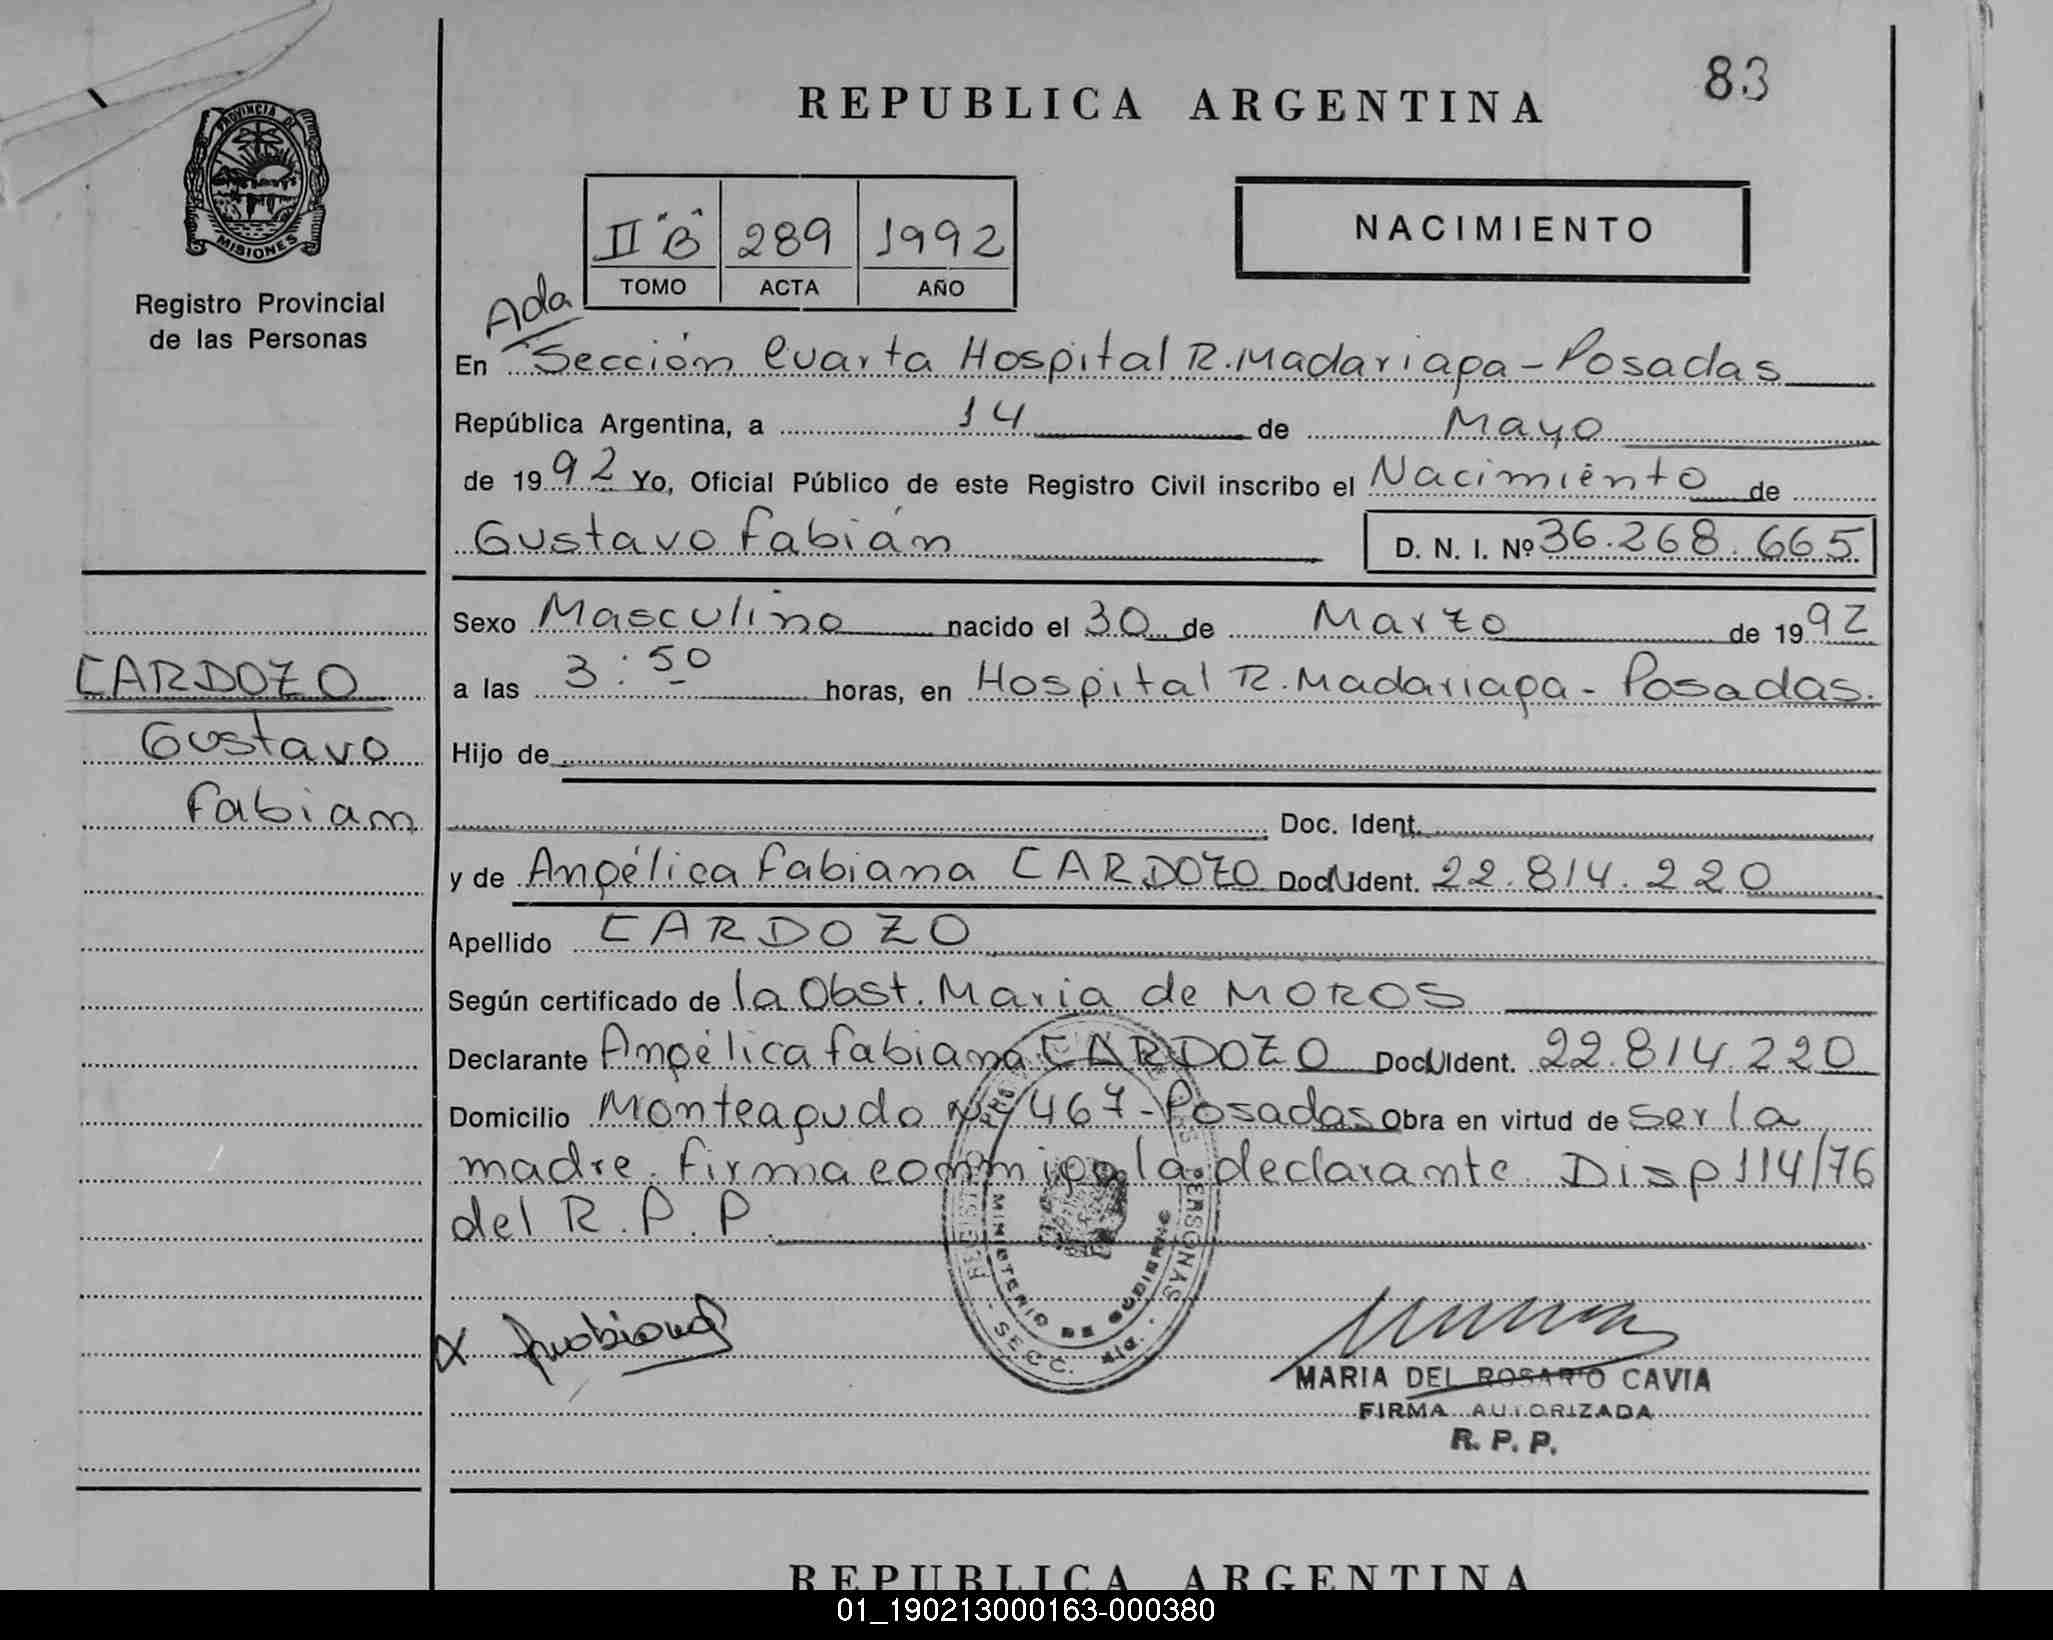 83
REPUBLICA ARGENTINA
PROVINCIA DE
MISIONES
Registro Provincial
de las Personas
II "B" 289 1992
TOMO ACTA AÑO
NACIMIENTO
Ada
En Sección Cuarta Hospital R. Madariaga - Posadas
República Argentina, a 14 de Mayo
de 1992 Yo, Oficial Público de este Registro Civil inscribo el Nacimiento de
Gustavo Fabián D. N. I. Nº 36.268.665
Sexo Masculino nacido el 30 de Marzo de 1992
CARDOZO
Gustavo
Fabian
a las 3:50 horas, en Hospital R. Madariaga - Posadas.
Hijo de
Doc. Ident.
y de Angélica Fabiana CARDOZO Doc. Ident. 22.814.220
Apellido CARDOZO
Según certificado de la Obst. Maria de MOROS
Declarante Angélica Fabiana CARDOZO Doc. Ident. 22.814.220
Domicilio Monteagudo Nº 467 - Posadas Obra en virtud de ser la
madre. Firma conmigo la declarante. Disp 114/76
del R. P. P.
PERSONAS
MINISTERIO DE GOBIERNO
SECC. 4ta.
X
MARIA DEL ROSARIO CAVIA
FIRMA AUTORIZADA
R. P. P.
REPUBLICA ARGENTINA
01_190213000163-000380